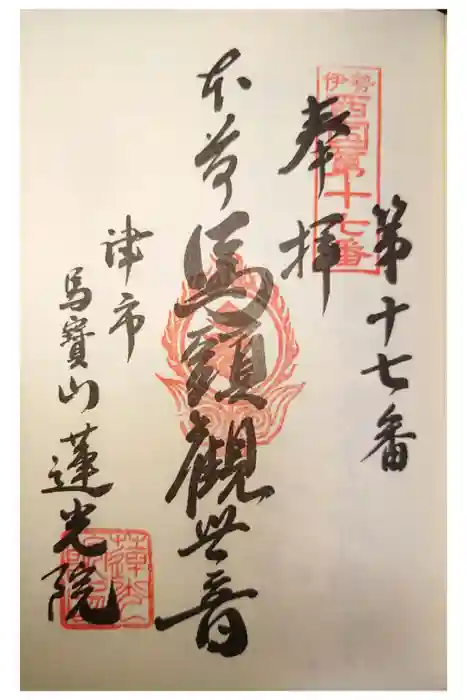 第十七番
奉拝
伊勢
西国第十七番
本尊
馬頭觀世音
津市
馬寶山
蓮光院